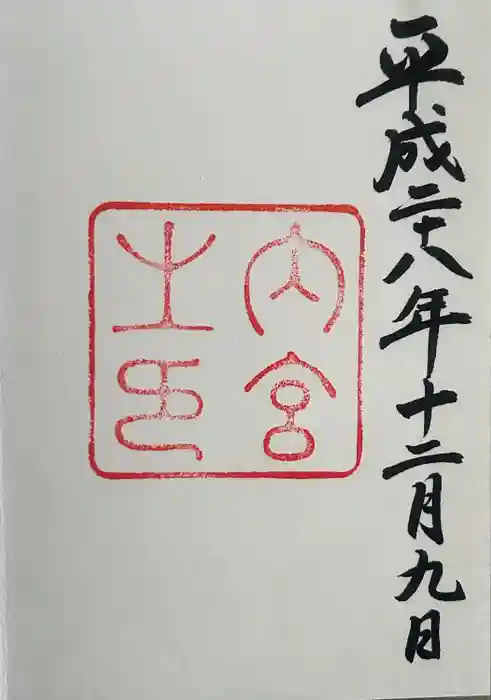 平成二十八年十二月九日
内宮之印